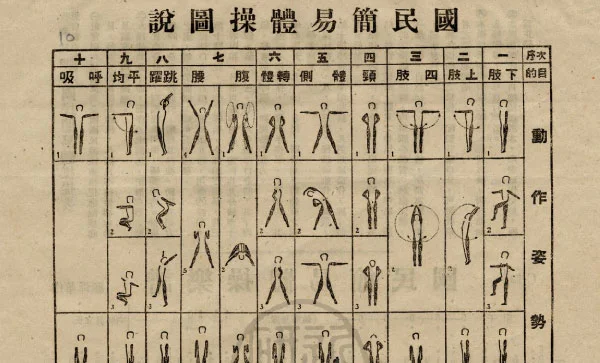 國民簡易體操圖說
10
次序 一 二 三 四 五 六 七 八 九 十
目的 下肢 上肢 四肢 頸 體側 轉體 腹腰 跳躍 平均 呼吸
動作姿勢